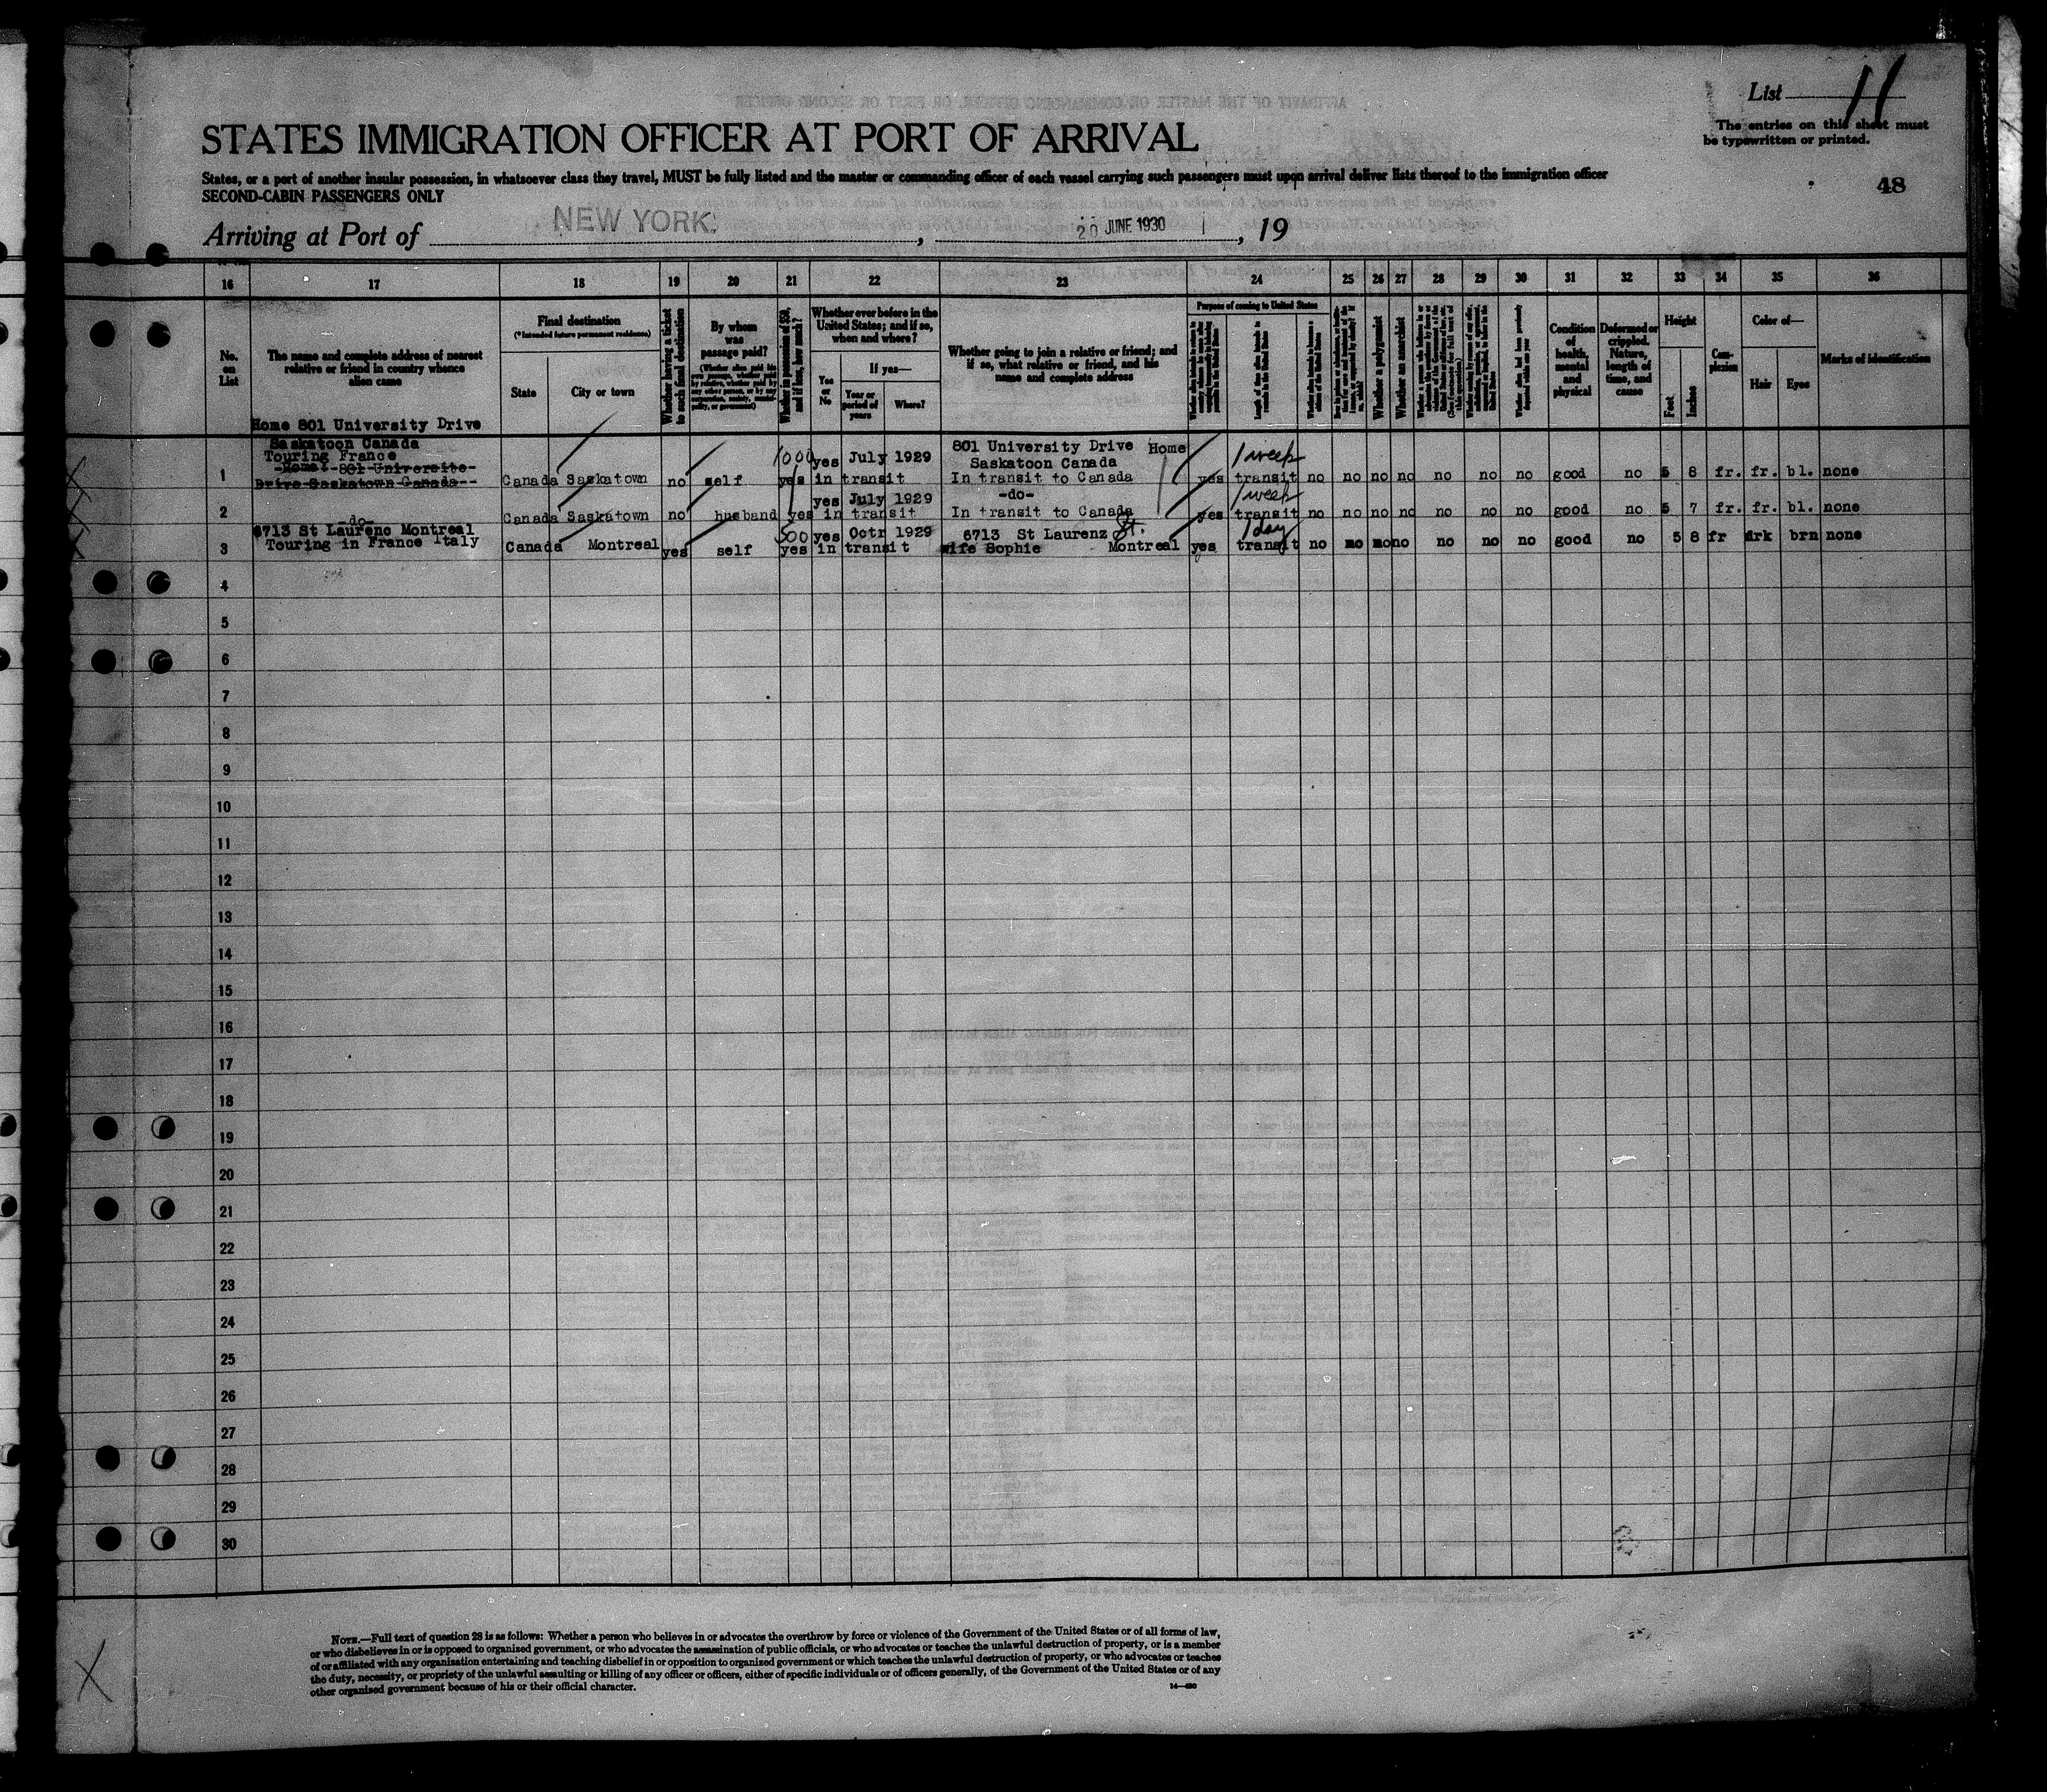 List 11
The entries on this sheet must
be typewritten or printed.
STATES IMMIGRATION OFFICER AT PORT OF ARRIVAL
States, or a port of another insular possession, in whatsoever class they travel, MUST be fully listed and the master or commanding officer of each vessel carrying such passengers must upon arrival deliver lists thereof to the immigration officer
SECOND-CABIN PASSENGERS ONLY
48
Arriving at Port of NEW YORK. , 20 JUNE 1930 , 19
16 17 18 19 20 21 22 23 24 25 26 27 28 29 30 31 32 33 34 35 36
No. on List
The name and complete address of nearest
relative or friend in country whence
alien came
Final destination
(*Intended future permanent residence)
State
City or town
Whether having a ticket
to such final destination
By whom
was
passage paid?
Whether in possession of $50,
and if less, how much?
Whether ever before in the
United States; and if so,
when and where?
Yes or No
If yes—
Year or period of years
Where?
Whether going to join a relative or friend; and
if so, what relative or friend, and his
name and complete address
Purpose of coming to United States
Length of time alien intends to
remain in the United States
Whether a polygamist
Whether an anarchist
Condition
of
health,
mental
and
physical
Deformed or
crippled.
Nature,
length of
time, and
cause
Height
Feet
Inches
Com-
plexion
Color of—
Hair
Eyes
Marks of identification
Home 801 University Drive
Saskatoon Canada
Touring France
-Home: 801 Universite-
Drive Saskatown Canada--
1 Canada Saskatown no self 1000 yes yes July 1929 in transit 801 University Drive Home Saskatoon Canada In transit to Canada yes 1 week transit no no no no no no no good no 5 8 fr. fr. bl. none
2 -do- Canada Saskatown no husband yes yes July 1929 in transit -do- In transit to Canada yes 1 week transit no no no no no no no good no 5 7 fr. fr. bl. none
3 6713 St Laurenc Montreal Touring in France Italy Canada Montreal yes self 500 yes yes Octr 1929 in transit 6713 St Laurenz St. wife Sophie Montreal yes 1 day transit no no no no no no no good no 5 8 fr drk brn none
4
5
6
7
8
9
10
11
12
13
14
15
16
17
18
19
20
21
22
23
24
25
26
27
28
29
30
X
NOTE.—Full text of question 28 is as follows: Whether a person who believes in or advocates the overthrow by force or violence of the Government of the United States or of all forms of law,
or who disbelieves in or is opposed to organized government, or who advocates the assassination of public officials, or who advocates or teaches the unlawful destruction of property, or is a member
of or affiliated with any organization entertaining and teaching disbelief in or opposition to organized government or which teaches the unlawful destruction of property, or who advocates or teaches
the duty, necessity, or propriety of the unlawful assaulting or killing of any officer or officers, either of specific individuals or of officers generally, of the Government of the United States or of any
other organized government because of his or their official character.
14—430